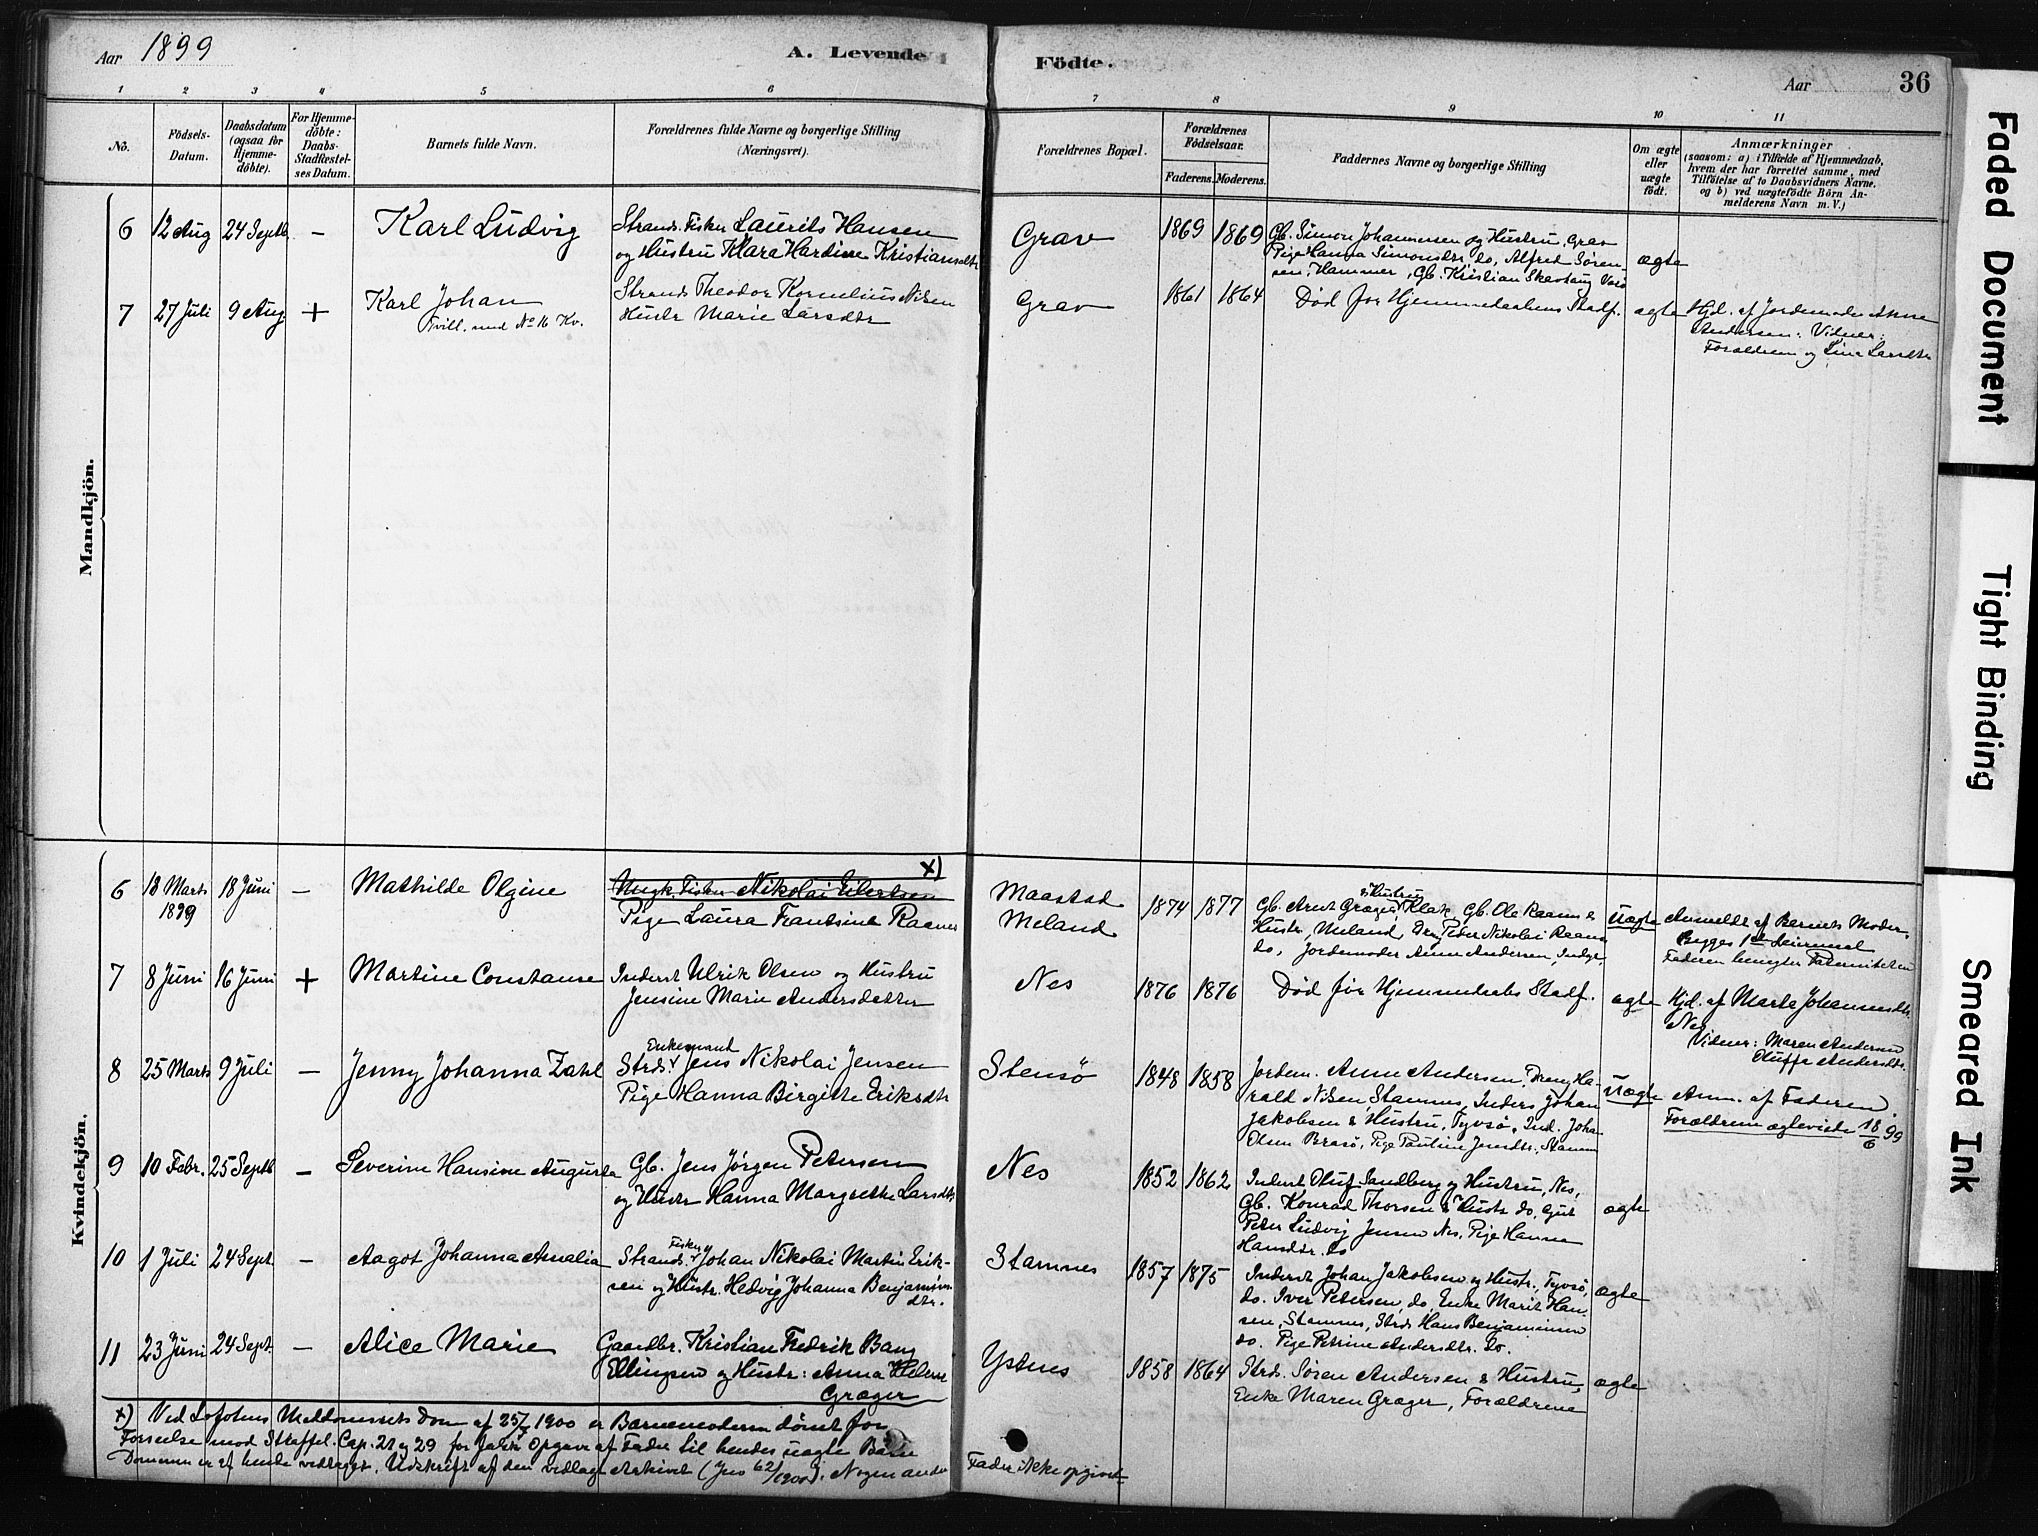 Aar 1899
A. Levende Födte.
Aar
36
1 2 3 4 5 6 7 8 9 10 11
No.
Födsels-Datum.
Daabsdatum (ogsaa for Hjemmedöbte).
For Hjemmedöbte: Daabs-Stadfæstelses Datum.
Barnets fulde Navn.
Forældrenes fulde Navne og borgerlige Stilling (Næringsvei).
Forældrenes Bopæl.
Forældrenes Födselsaar.
Faderens. Moderens.
Faddernes Navne og borgerlige Stilling
Om ægte eller uægte födt.
Anmærkninger
(saasom: a) i Tilfælde af Hjemmedaab, hvem der har forrettet samme, med Tilföielse af to Daabsvidners Navne. og b) ved uægtefödte Börn Anmelderens Navn m. V.)
Mandkjön.
6 12 Aug 24 Septb. – Karl Ludvig
Strands. Fisker Laurits Hansen
og Hustru Klara Hardine Kristiansdtr
Grav 1869 1869
Gb. Simon Johannesen og Hustru, Grav
Pige Hanna Simonsdtr do, Alfred Søren-
sen, Hammer, Gb. Kristian
ægte
7 27 Juli 9 Aug + Karl Johan
Tvill. med No 16 Kv.
Strands Theodor Kornelius Nilsen
Hustr Marie Larsdtr
Grav 1861 1864 Død før Hjemmedaabens Stadf. ægte
Hjd. af Jordemoder Anne
Andersen. Vidner:
Forældrene og Lina Larsdtr
Kvindekjön.
6 18 Marts 1899 18 Juni – Mathilde Olgine
x)
Ungk. Fisker Nikolai Eilertsen
Pige Laura Frantsine Raanes
Maastad
Meland
1874 1877
Gb. Arnt Græger & Hustru, Klak, Gb. Ole Raanes &
Hustr, Meland, Peder Nikolai Raanes
do, Jordemoder Anne Andersen,
uægte
Anmeldt af Barnets Moder.
Begges 1ste Leiermaal
Faderen benegter Paterniteten
7 8 Juni 16 Juni + Martine Constanse
Inderst Ulrik Olsen og Hustru
Jensine Marie Andersdatter
Nes 1876 1876 Død før Hjemmedaabs Stadf. ægte
Hjd. af Marta Johannesdtr
Nes
Vidner: Maren Andersen
Oluffa Andersdtr.
8 25 Marts 9 Juli – Jenny Johanna Zahl
Strds. Enkemand Jens Nikolai Jensen
Pige Hanna Birgitte Eriksdtr
Stensø 1848 1858
Jordem. Anne Andersen, Dreng Ha-
rald Nilsen Stamnes, Inders Johan
Jakobsen & Hustru, Tyvsø, Ind. Joha
Olsen Brasø, Pige Pauline Jensdtr, Stamn
uægte
Anm. af Faderen.
Forældrene ægteviede 18/6 99
9 10 Febr. 25 Septb – Severine Hansine Augusta
Gb. Jens Jørgen Petersen
og Hustr Hanna Margrethe Larsdtr
Nes 1852 1862
Inderst Oluf Sandberg og Hustru, Nes,
Gb. Konrad Thorsen & Hustr do, Gut
Peter Ludvig Jensen Nes, Pige Hanna
Hansdtr. do
ægte
10 1 Juli 24 Sept. – Aagot Johanna Amalia
Strands. Fisker Johan Nikolai Martin Erik-
sen og Hustr. Hedvig Johanna Benjamins
dtr.
Stamnes 1857 1875
Inderst Johan Jakobsen og Hustr., Tyvsø,
do. Iver Petersen, do, Enke Marit Han-
sen, Stamnes, Strds Hans Benjaminsen
do. Pige Petrine Andersdtr. do.
ægte
11 23 Juni 24 Sept. – Alice Marie
Gaardbr. Kristian Fredrik Bang
Ellingsen og Hustr: Anna Helene
Græger
Ystnes 1858 1864
Strds. Søren Andersen & Hustru,
Enke Maren Græger, Forældrene
ægte
x) Ved Lofotens Meddomsrets Dom af 25/7 1900 er Barnemoderen dømt for
Forseelse mod Straffel. Cap. 21 og 29 for falsk Opgave af Fader til hendes uægte Barn
Dommen er af hende vedtaget. Udskrift af den vedlagt Arkivet (Jno 62/1900). Nogen anden
Fader ikke opgivet
Faded Document
Tight Binding
Smeared Ink